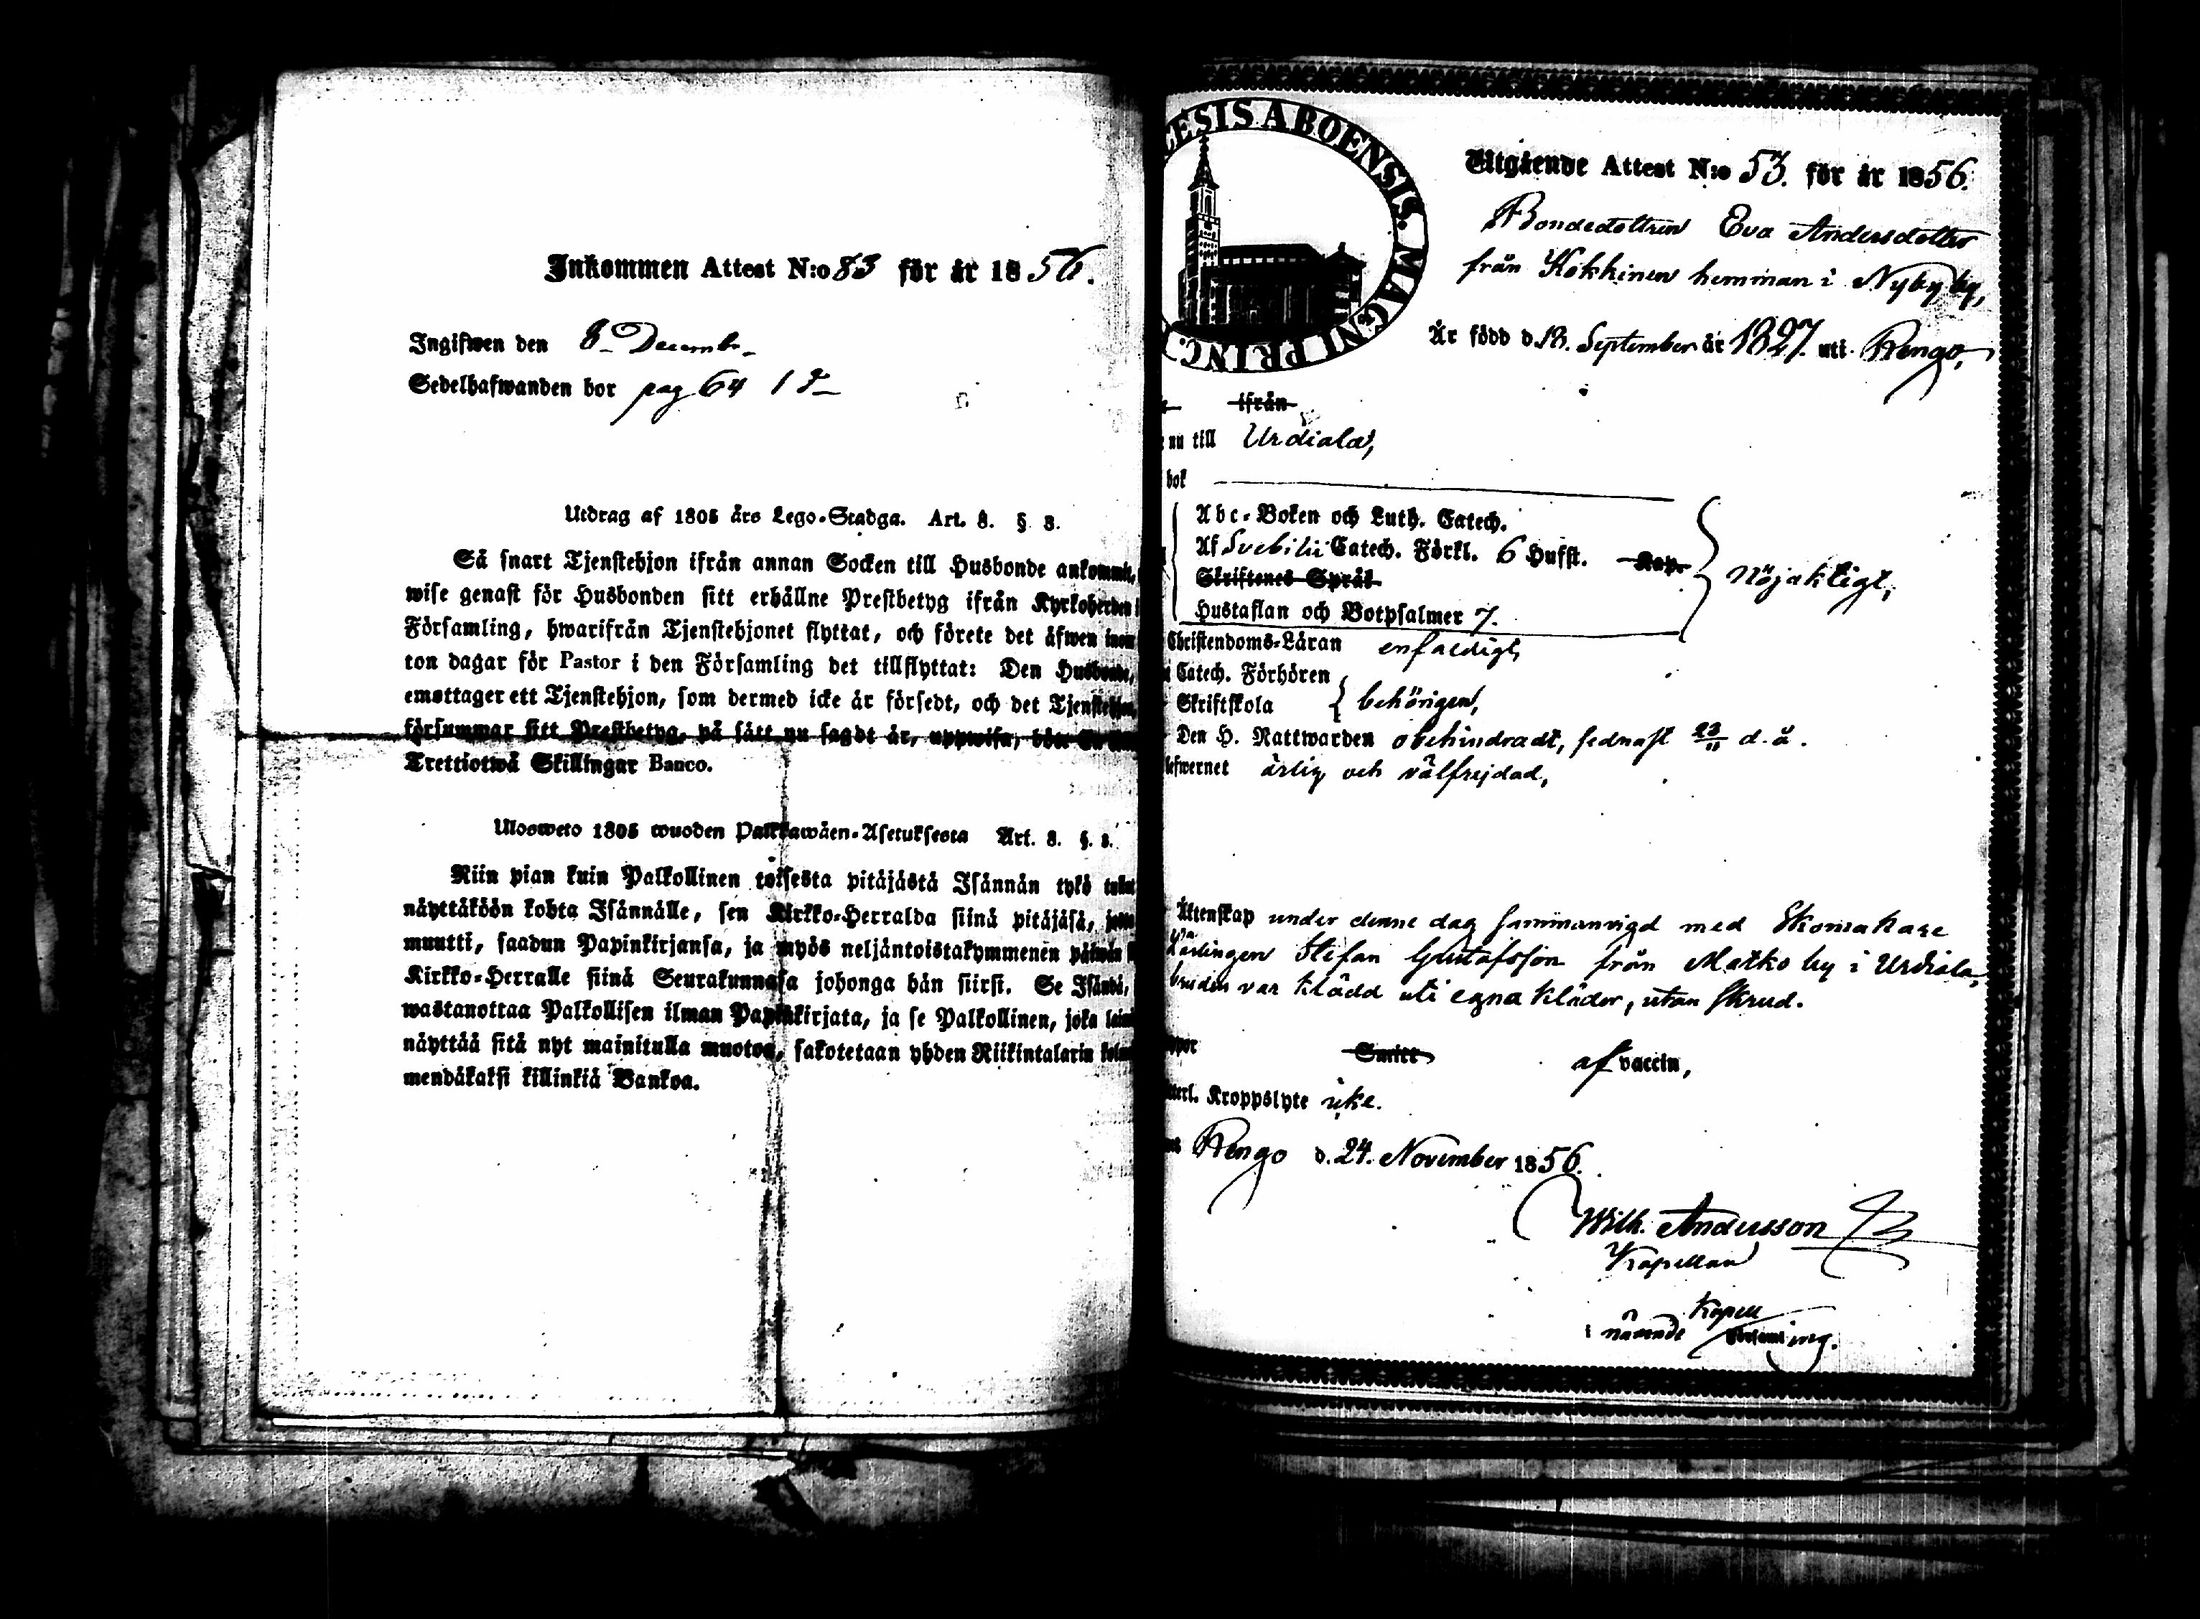 Inkommen Attest N:o 83 för år 1856.
Ingifwen den 8 Decembr
Sedelhafwanden bor pag 64
Utdrag af 1805 års Lego-Stadga. Art. 8. § 3.
Så snart Tjenstehjon ifrån annan Socken till Husbonde ankommit,
wise genast för Husbonden sitt erhållne Prestbetyg ifrån Kyrkoherden
Församling, hwarifrån Tjenstehjonet flyttat, och förete det äfwen inom
ton dagar för Pastor i den Församling det tillflyttat: Den Husbonde,
emottager ett Tjenstehjon, som dermed icke är försedt, och det Tjenstehjon,
försummar sitt Prestbetyg, på sätt nu sagdt är, uppwisa, böte
Trettiotwå Skillingar Banco.
Ulosweto 1805 wuoden Palkkawäen-Asetuksesta Art. 8. §. 3.
Niin pian kuin Palkollinen toisesta pitäjästä Isännän tykö
näyttäköön kohta Isännälle, sen Kirkko-Herralda siinä pitäjäsä,
muutti, saadun Papinkirjansa, ja myös neljäntoistakymmenen päiwän
Kirkko-Herralle siinä Seurakunnasa johonga hän siirsi. Se Isändä,
wastanottaa Palkollisen ilman Papinkirjata, ja se Palkollinen, joka
näyttää sitä nyt mainitulla muotoa, sakotetaan yhden Riikintalarin
mendäkaksi killinkiä Bankoa.
ESIS ABOENSIS. MAGNI PRINC.
Utgående Attest N:o 53. för år 1856.
Bondedottren Eva Andersdotter
från Kokkinen hemman i Nyby by,
Är född d. 18. September år 1827. uti Rengo,
ifrån
nu till Urdiala,
bok
Abc-Boken och Luth. Catech.
Af Svebilii Catech. Förkl. 6 Hufst. Kap. nöjaktigt,
Skriftenes Språk
Hustaflan och Botpsalmer 7.
Christendoms-Läran enfaldigt,
Catech. Förhören
Skriftskola behörigen,
Den H. Nattwarden obehindradt, sednast 23/11 d. å.
lefwernet ärlig och välfrejdad,
Äktenskap under denne dag sammanvigd med Skomakare
Lärlingen Stefan Gustafsson från Matko by i Urdiala,
bruden var klädd uti egna kläder, utan skrud.
Smitt af vaccin,
Kroppslyte icke.
Rengo d. 24. November 1856.
Wilh. Andersson
Kapellan
i närvande Kapell Församling.